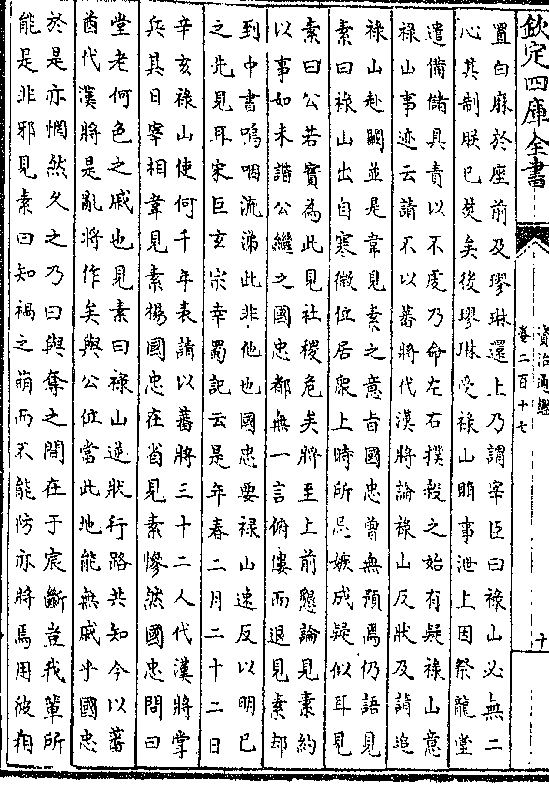 欽定四庫全書
資治通鑑
卷二百十七
十
置白麻於座前及璆琳還上乃謂宰臣曰祿山必無二
心其制朕已焚矣後璆琳受祿山賄事泄上因祭龍堂
遣備儲具責以不虔乃命左右撲殺之始有疑祿山意
祿山事迹云請不以蕃將代漢將論祿山反狀及請追
祿山赴闕並是韋見素之意旨國忠曾無預焉仍語見
素曰祿山出自寒微位居衆上時所忌嫉成疑似耳見
素曰公若實為此見社稷危矣將至上前懇論見素約
以事如未諧公繼之國忠都無一言俯僂而退見素却
到中書嗚咽流涕此非他也國忠要祿山速反以明已
之先見耳宋巨玄宗幸蜀記云是年春二月二十二日
辛亥祿山使何千年表請以蕃將三十二人代漢將掌
兵其日宰相韋見素楊國忠在省見素慘然國忠問曰
堂老何色之戚也見素曰祿山逆狀行路共知今以蕃
酋代漢將是亂將作矣與公位當此地能無戚乎國忠
於是亦惘然久之乃曰與奪之間在于宸斷豈我輩所
能是非邪見素曰知禍之萌而不能防亦將焉用彼相